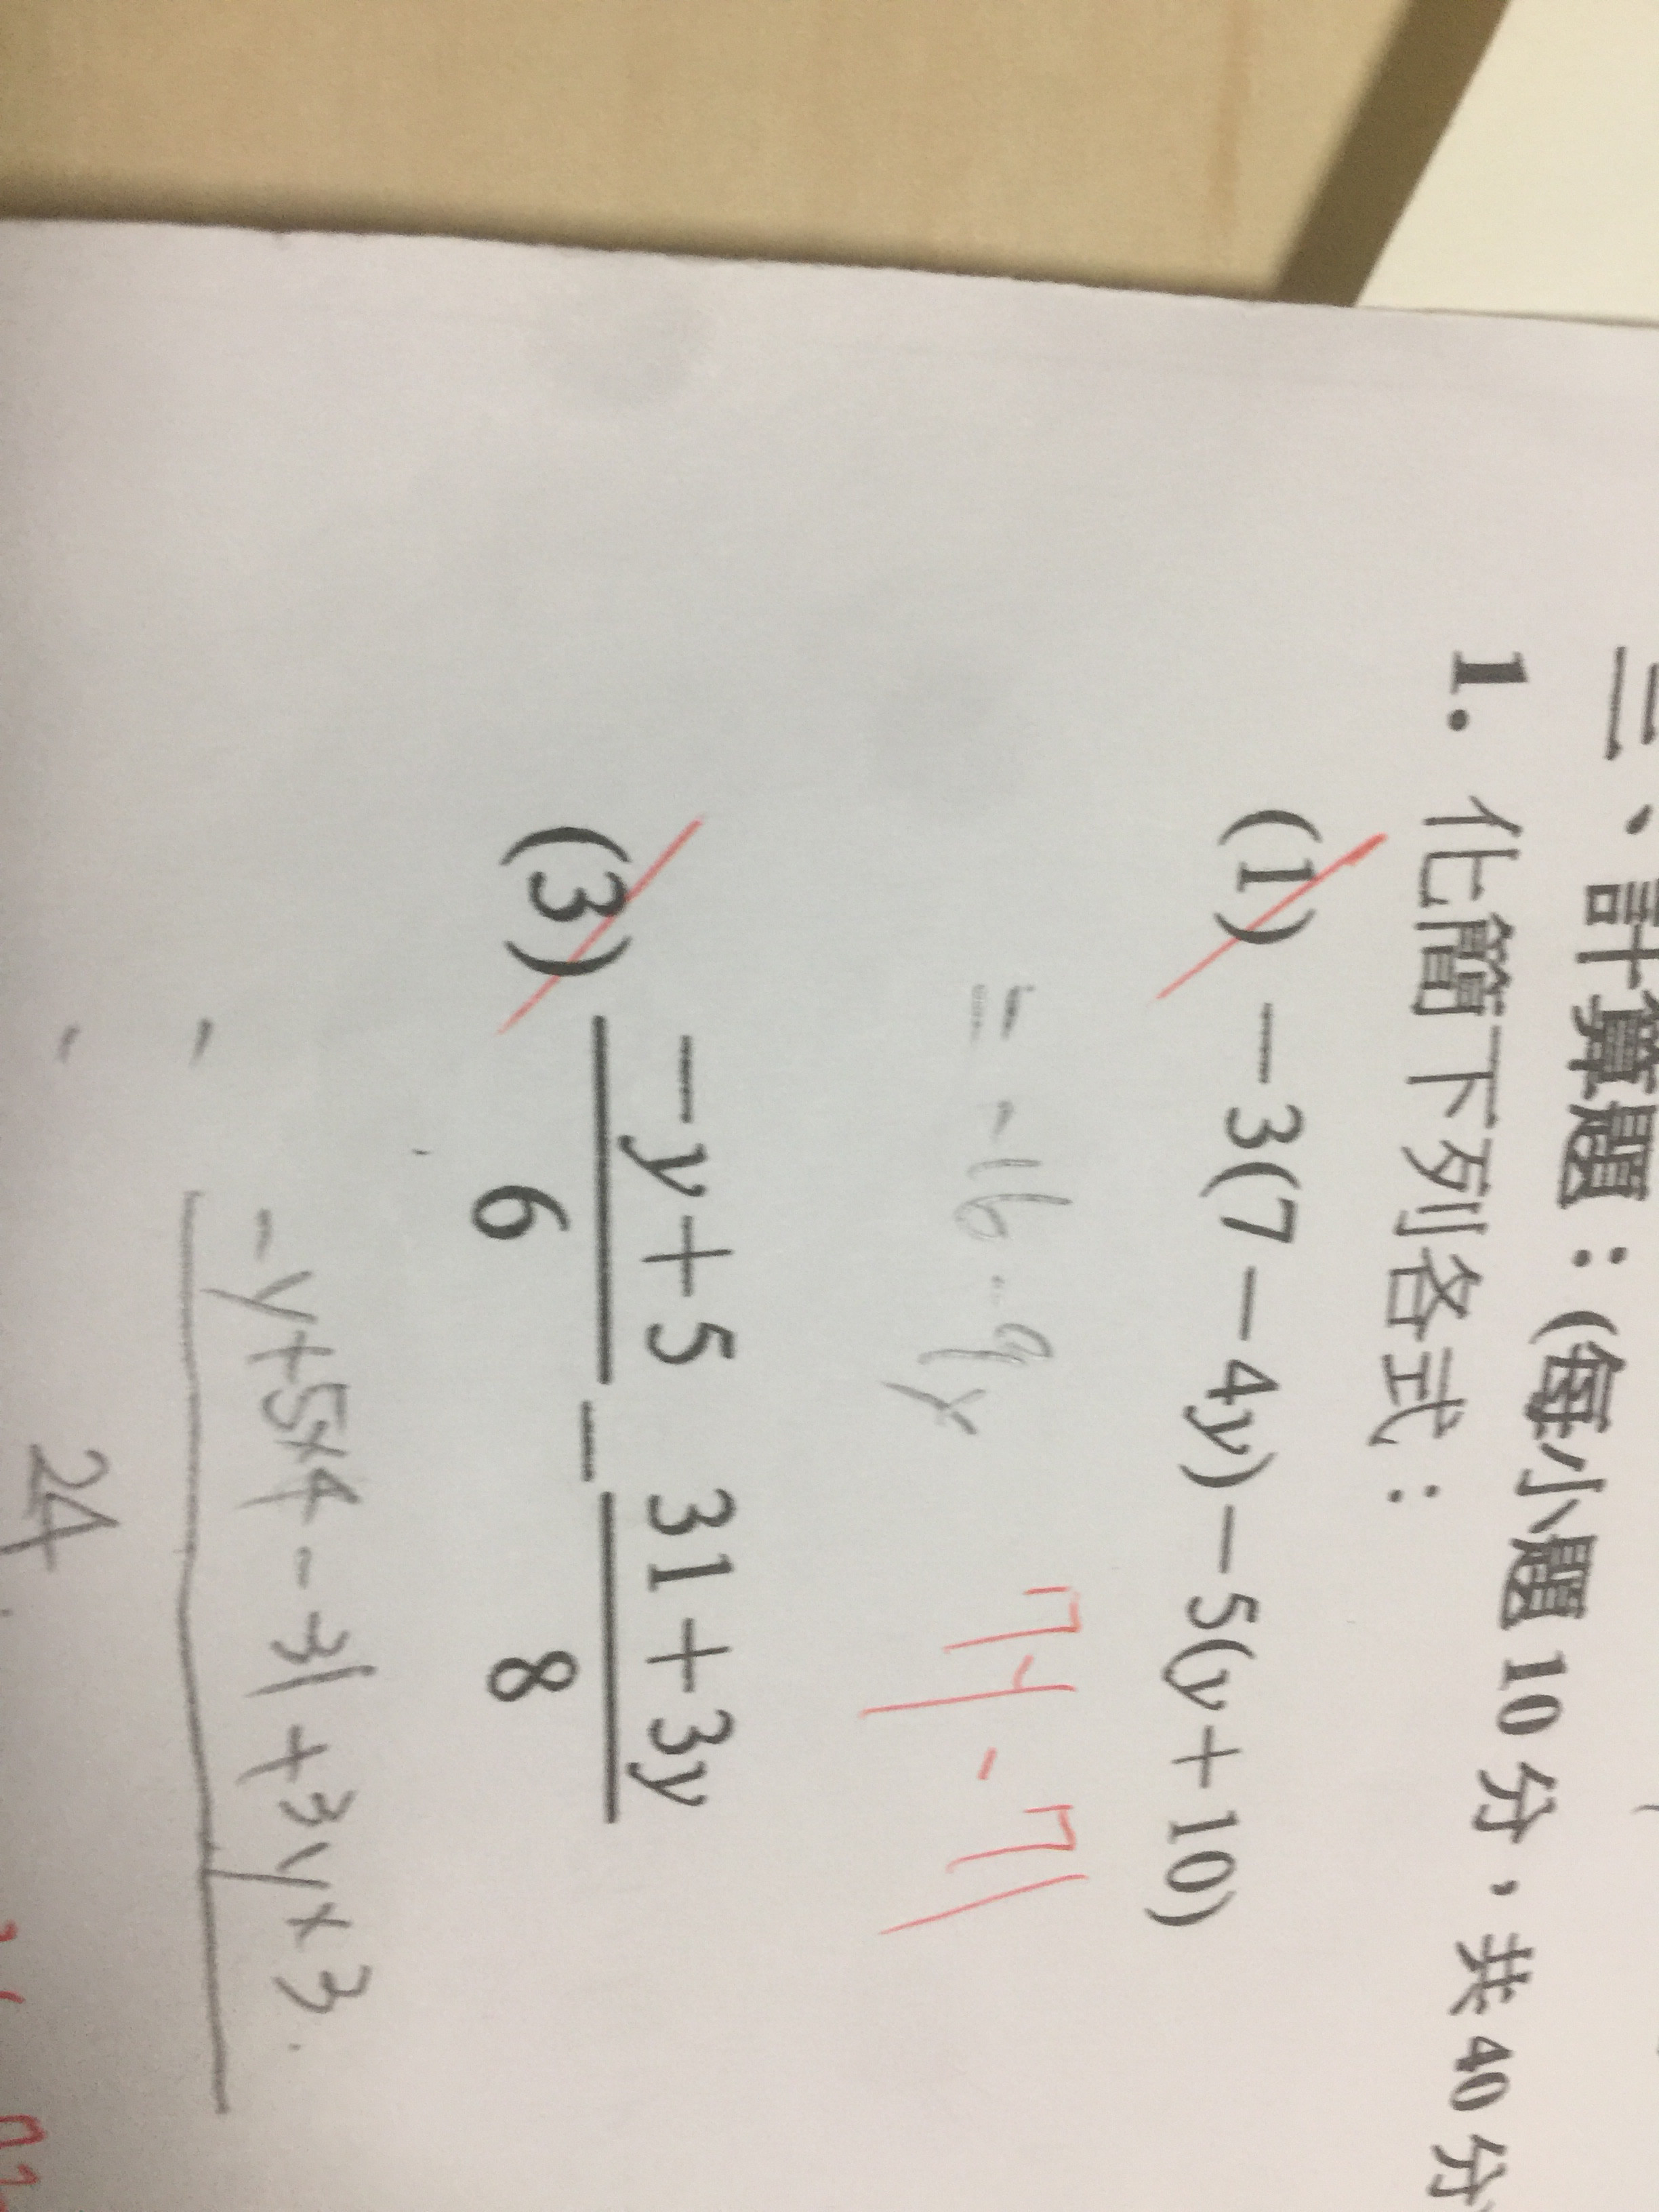 三、計算題：(每小題 10 分，共 40 分
1. 化簡下列各式：
(1) －3(7－4y)－5(y＋10)
= -16-9y 7y-71
(3) －y＋5／6 － 31＋3y／8
-y+5×4-31+3y×3
24